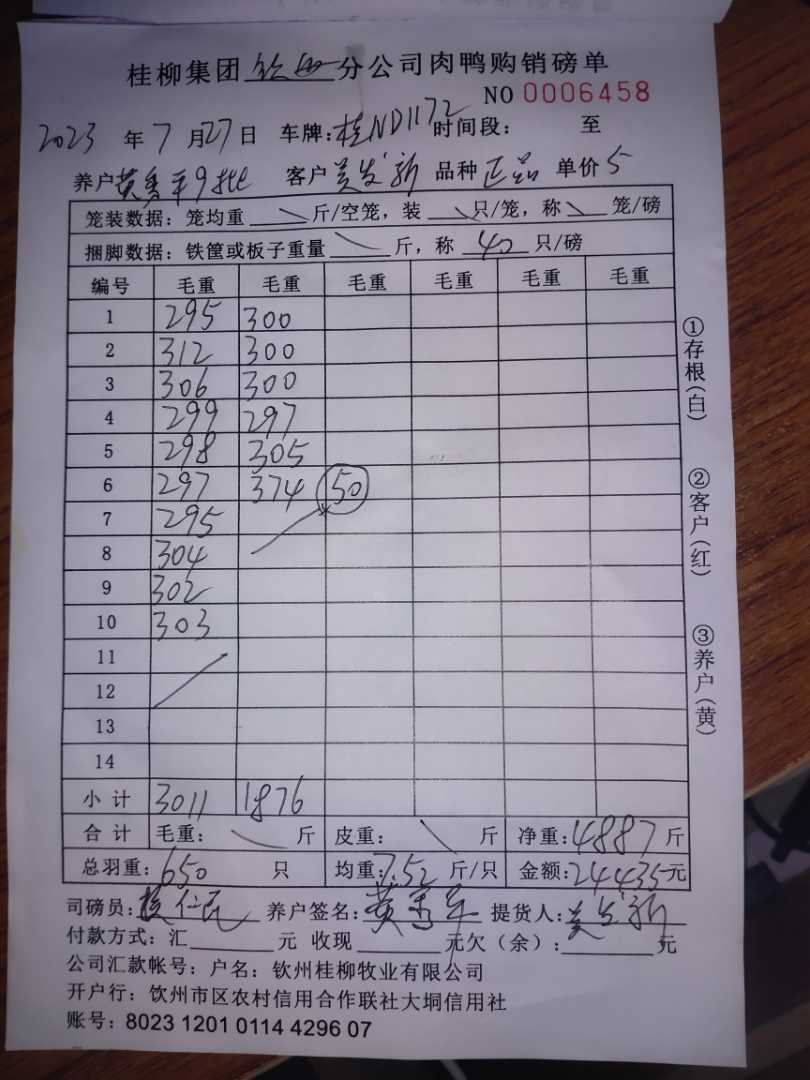 桂柳集团钦州分公司肉鸭购销磅单
NO 0006458
2023年7月27日 车牌:桂ND1172 时间段: 至
养户黄秀平9批 客户吴发新 品种正品 单价5
笼装数据: 笼均重 斤/空笼, 装 只/笼, 称 笼/磅
捆脚数据: 铁筐或板子重量 斤, 称 40 只/磅
编号 毛重 毛重 毛重 毛重 毛重 毛重
1 295 300
2 312 300
3 306 300
4 299 297
5 298 305
6 297 374 50
7 295
8 304
9 302
10 303
11
12
13
14
小计 3011 1876
合计 毛重: 斤 皮重: 斤 净重:4887斤
总羽重:650 只 均重:7.52斤/只 金额:24435元
司磅员:仁民 养户签名:黄秀平 提货人:吴发新
付款方式: 汇 元 收现 元欠(余): 元
公司汇款帐号: 户名: 钦州桂柳牧业有限公司
开户行: 饮州市区农村信用合作联社大垌信用社
账号: 8023 1201 0114 4296 07
①存根(白)
②客户(红)
③养户(黄)